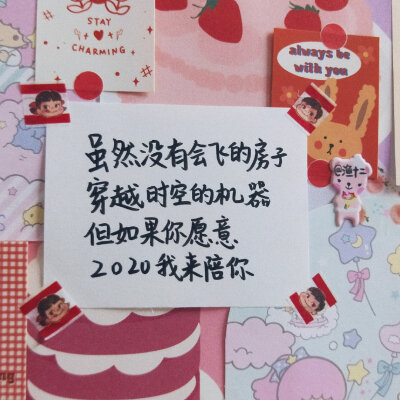 STAY
CHARMING
always be
with you
虽然没有会飞的房子
穿越时空的机器
但如果你愿意
2020我来陪你
@渔十二
ng